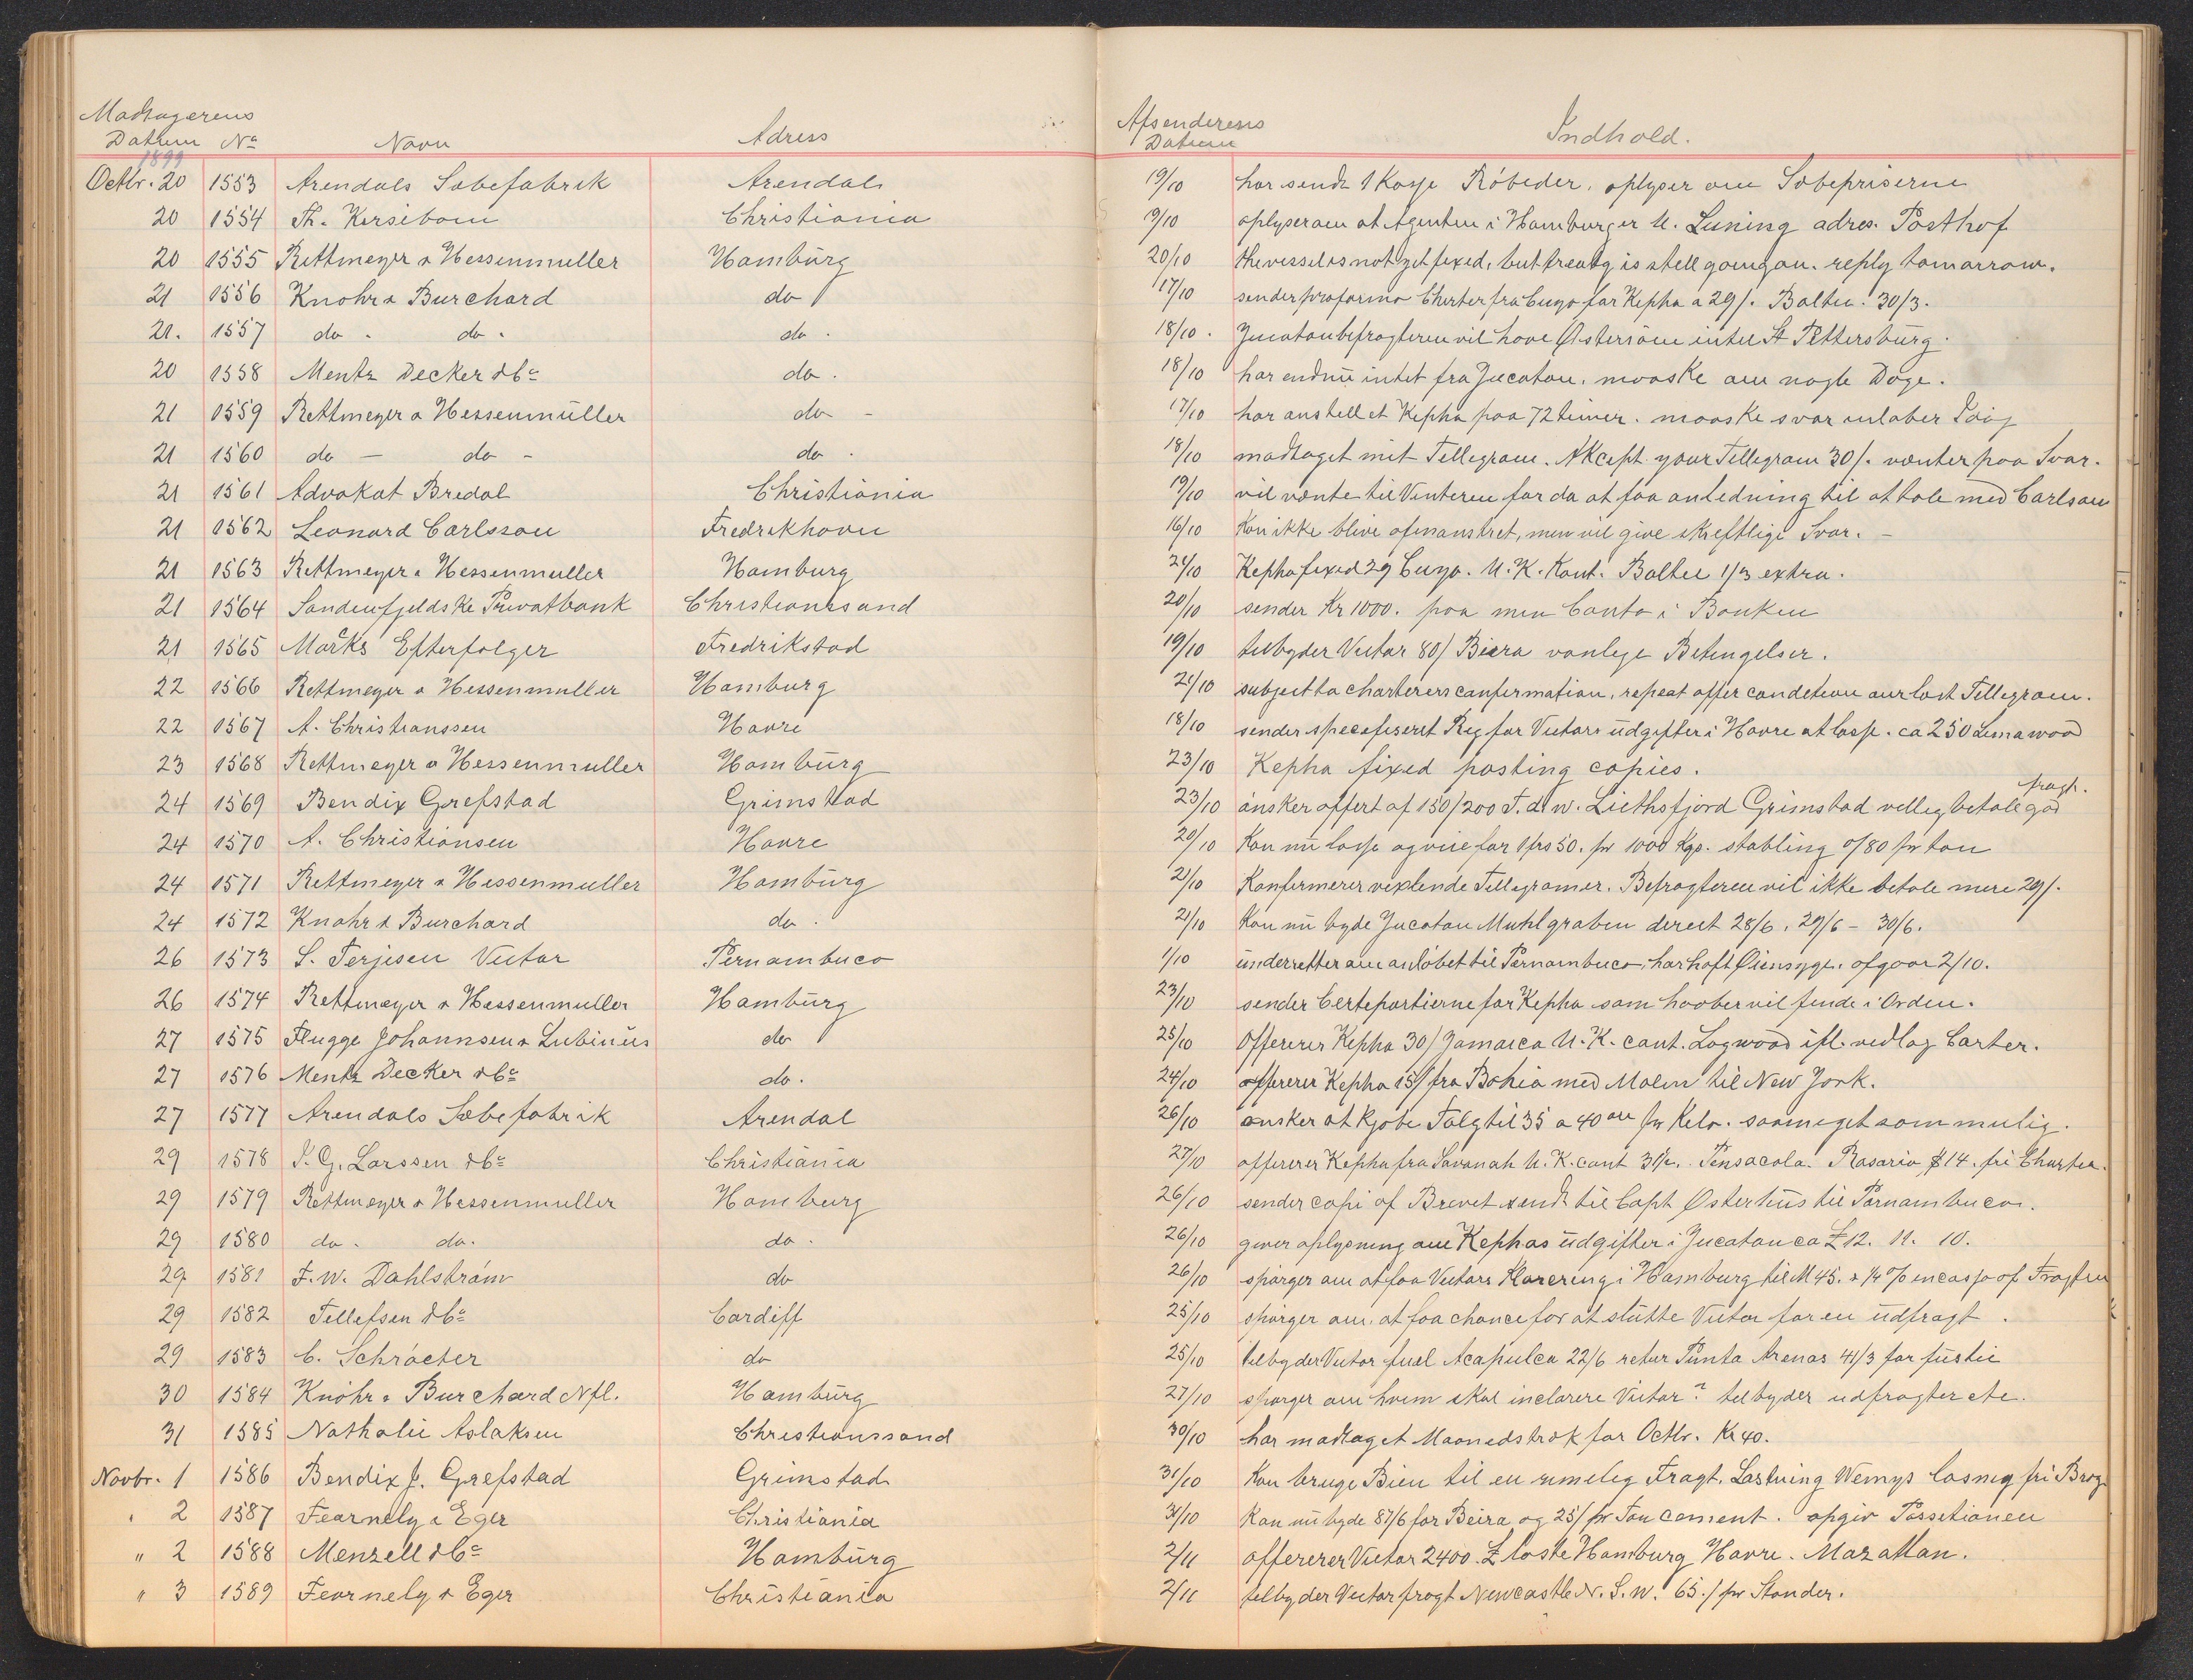 Modtagerens Afsenderens
Datum No Navn Adress Datum Indhold.
1899
Octbr. 20 1553 Arendals Sæbefabrik Arendal 19/10 har sendt 1 Kasse Röbeder, oplyser om Sæbepriserne
20 1554 Th. Kersebom Christiania 19/10 oplyser om at Agenten i Hamburg er U. Luning adres. Posthof
20 1555 Rettmeyer & Hessenmuller Hamburg 20/10 the vessel is not yet fixed, but treatg is still going on. reply tomorrow.
21 1556 Knohr & Burchard do 17/10 sender proforma Charter fra Cuyo for Kepha a 29/. Baltic. 30/3.
21. 1557 do. do. do. 18/10. Jucatan befragteren vil have Østersöen inter St Pettersburg.
20 1558 Mentz Decker & Co do. 18/10 har endnu intet fra Jucatan, maaske om nogle Dage.
21 1559 Rettmeyer & Hessenmüller do - 17/10 har anstellet Kepha paa 72 timer. maaske svar inlöber Idag
21 1560 do - do - do. 18/10 modtaget mit Tellegram. Akcept your Tellegram 30/. venter paa Svar.
21 1561 Advokat Bredal Christiania 19/10 vil vente til Vinteren for da at faa anledning til at tale med Carlson
21 1562 Leonard Carlsson Fredrikhavn 16/10 Kan ikke blive afmønstret, men vil give skriftlige Svar. -
21 1563 Rettmeyer & Hessenmuller Hamburg 21/10 Kepha fixed 29 Cuyo. U.K. Kont. Baltic 1/3 extra.
21 1564 Søndenfjeldske Privatbank Christianssand 20/10 sender Kr 1000. paa min Conto i Banken
21 1565 Mørks Efterfølger Fredrikstad 19/10 tilbyder Victor 80/ Beira vanlige Betingelser.
22 1566 Rettmeyer & Hessenmuller Hamburg 21/10 subject to charterers confirmation, repeat offer condition our last Tellegram.
22 1567 A. Christianssen Havre 18/10 sender specefiseret Reg for Victors udgifter i Havre at losse. ca 250 Limawood
23 1568 Rettmeyer & Hessenmuller Hamburg 23/10 Kepha fixed posting copies.
24 1569 Bendix Grefstad Grimstad 23/10 ønsker offert af 150/200 T. d.w. Liethsfjord Grimstad velleg betale god fragt.
24 1570 A. Christiansen Havre 20/10 Kan nu losse og veie for 1 frs 50. pr 1000 Kgs. stabling 0/80 pr ton
24 1571 Rettmeyer & Hessenmuller Hamburg 21/10 Konfermerer vexlende Tellegramer. Befragteren vil ikke betale mere 29/.
24 1572 Knohr & Burchard do. 21/10 Kan nu byde Jucatan Muhlgraben direct 28/6, 29/6 - 30/6.
26 1573 S. Terjesen Victor Pernambuco 1/10 underretter om anløbet til Pernambuco, har haft Øiensyge. afgaar 2/10.
26 1574 Rettmeyer & Hessenmuller Hamburg 23/10 sender Certepartierne for Kepha som haaber vil finde i Orden.
27 1575 Flugge Johannsen & Lubinüs do 25/10 Offererer Kepha 30/ Jamaica U.K. cont. Logwood ifl. vedlag Carter.
27 1576 Mentz Decker & Co do. 24/10 offererer Kepha 15/ fra Bahia med Malm til New York.
27 1577 Arendals Sæbefabrik Arendal 26/10 ønsker at kjøbe Talg til 35 a 40 øre pr Kelo. saameget som mulig.
29 1578 I. G. Larssen & Co Christiania 27/10 offererer Kepha fra Savanah U.K. cont 31/2. Pensacola. Rosario $14. fri Charter.
29 1579 Rettmeyer & Hessenmuller Hamburg 26/10 sender copi af Brevet sendt til Capt Østerhus til Pernambuco.
29 1580 do. do. do. 26/10 giver oplysning om Kephas udgifter i Jucatan ca £ 12. 11. 10.
29 1581 F. W. Dahlström do 26/10 spørger om at faa Victors Klarering i Hamburg til M 45. & 1/4 % incasso af Fragten
29 1582 Tellefsen & Co Cardiff 25/10 spørger om, at faa chance for at slutte Victor for en udfragt.
29 1583 C. Schröcter do 25/10 tilbyder Victor fuel Acapulco 22/6 retur Punta Arenas 41/3 for fustic
30 1584 Knöhr & Burchard Nfl. Hamburg 27/10 spørger om hvem skal inclarere Victor? tilbyder udfragter etc.
31 1585 Nathalie Aslaksen Christianssand 30/10 har modtaget Maanedstræk for Octbr. Kr 40.
Novbr. 1 1586 Bendix J. Grefstad Grimstad 31/10 Kan bruge Bien til en rimelig Fragt. Lastning Wemys losning fri Brog
" 2 1587 Fearnely & Eger Christiania 31/10 Kan nu byde 87/6 for Beira og 25/ pr Ton cement. opgiv Possetionen
" 2 1588 Menzell & Co Hamburg 2/11 offererer Victor 2400. £ laste Hamburg Havre. Mazatlan.
" 3 1589 Fearnely & Eger Christiania 2/11 telbyder Victor fragt Newcastle N. S. W. 65./ pr Stander.